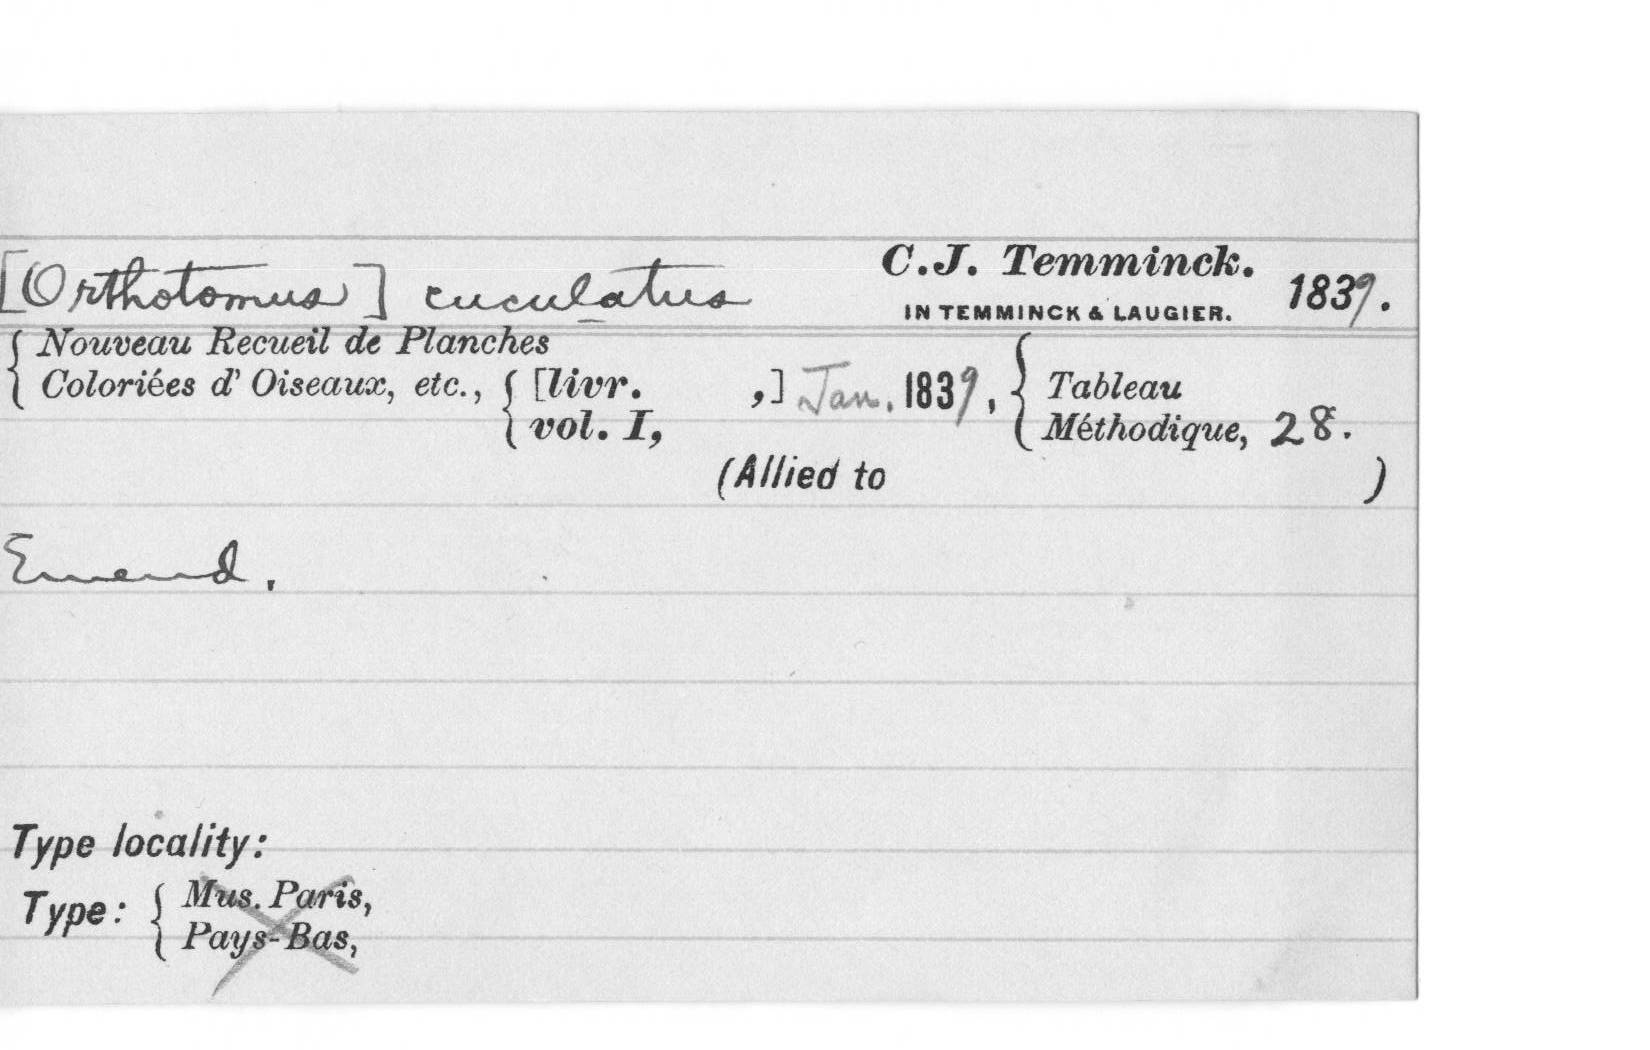 [Orthotomus] cuculatus C.J. Temminck. 1839.
IN TEMMINCK & LAUGIER.
Nouveau Recueil de Planches
Coloriées d' Oiseaux, etc., [livr. ,] Jan. 1839, Tableau
vol. I, Méthodique, 28.
(Allied to )
Emend.
Type locality:
Type: Mus. Paris,
Pays-Bas,